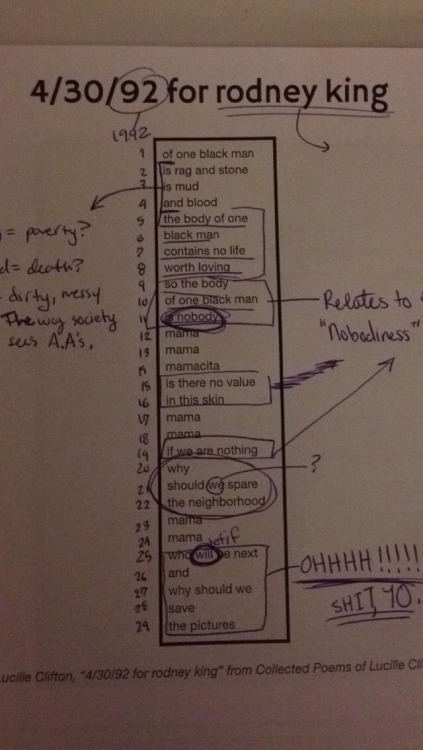 4/30/92 for rodney king
1992
1 of one black man
2 is rag and stone
3 is mud
4 and blood
5 the body of one
6 black man
7 contains no life
8 worth loving
9 so the body
10 of one black man
11 is nobody
12 mama
13 mama
14 mamacita
15 is there no value
16 in this skin
17 mama
18 mama
19 if we are nothing
20 why
21 should we spare
22 the neighborhood
23 mama
24 mama
25 who will be next
26 and
27 why should we
28 save
29 the pictures
= poverty?
d= death?
= dirty, messy
The way society
sees A.A's.
Relates to
"Nobodiness"
?
OHHHH !!!!!!
SHIT, YO.
ucille Clifton, "4/30/92 for rodney king" from Collected Poems of Lucille Cli